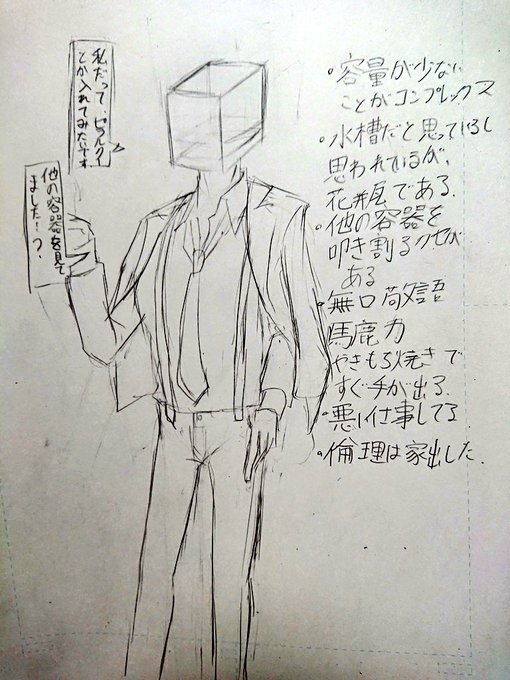 私だって ピラルク
とか入れてみたいです
他の容器を見て
ました…？
・容量が少ない
ことがコンプレックス
・水槽だと思っているし
思われているが、
花瓶である。
・他の容器を
叩き割るクセが
ある
・無口敬語
馬鹿力
やきもち焼きで
すぐ手が出る
・悪い仕事してる
・倫理は家出した。